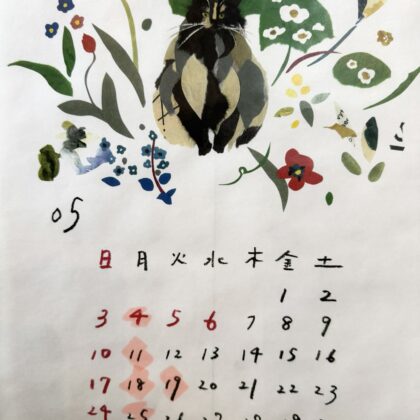 05
日 月 火 水 木 金 土
1 2
3 4 5 6 7 8 9
10 11 12 13 14 15 16
17 18 19 20 21 22 23
24 25 26 27 28 29 30